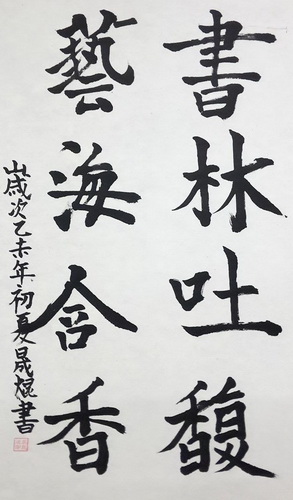 書林吐馥
藝海含香
歲次乙未年初夏晟焜書